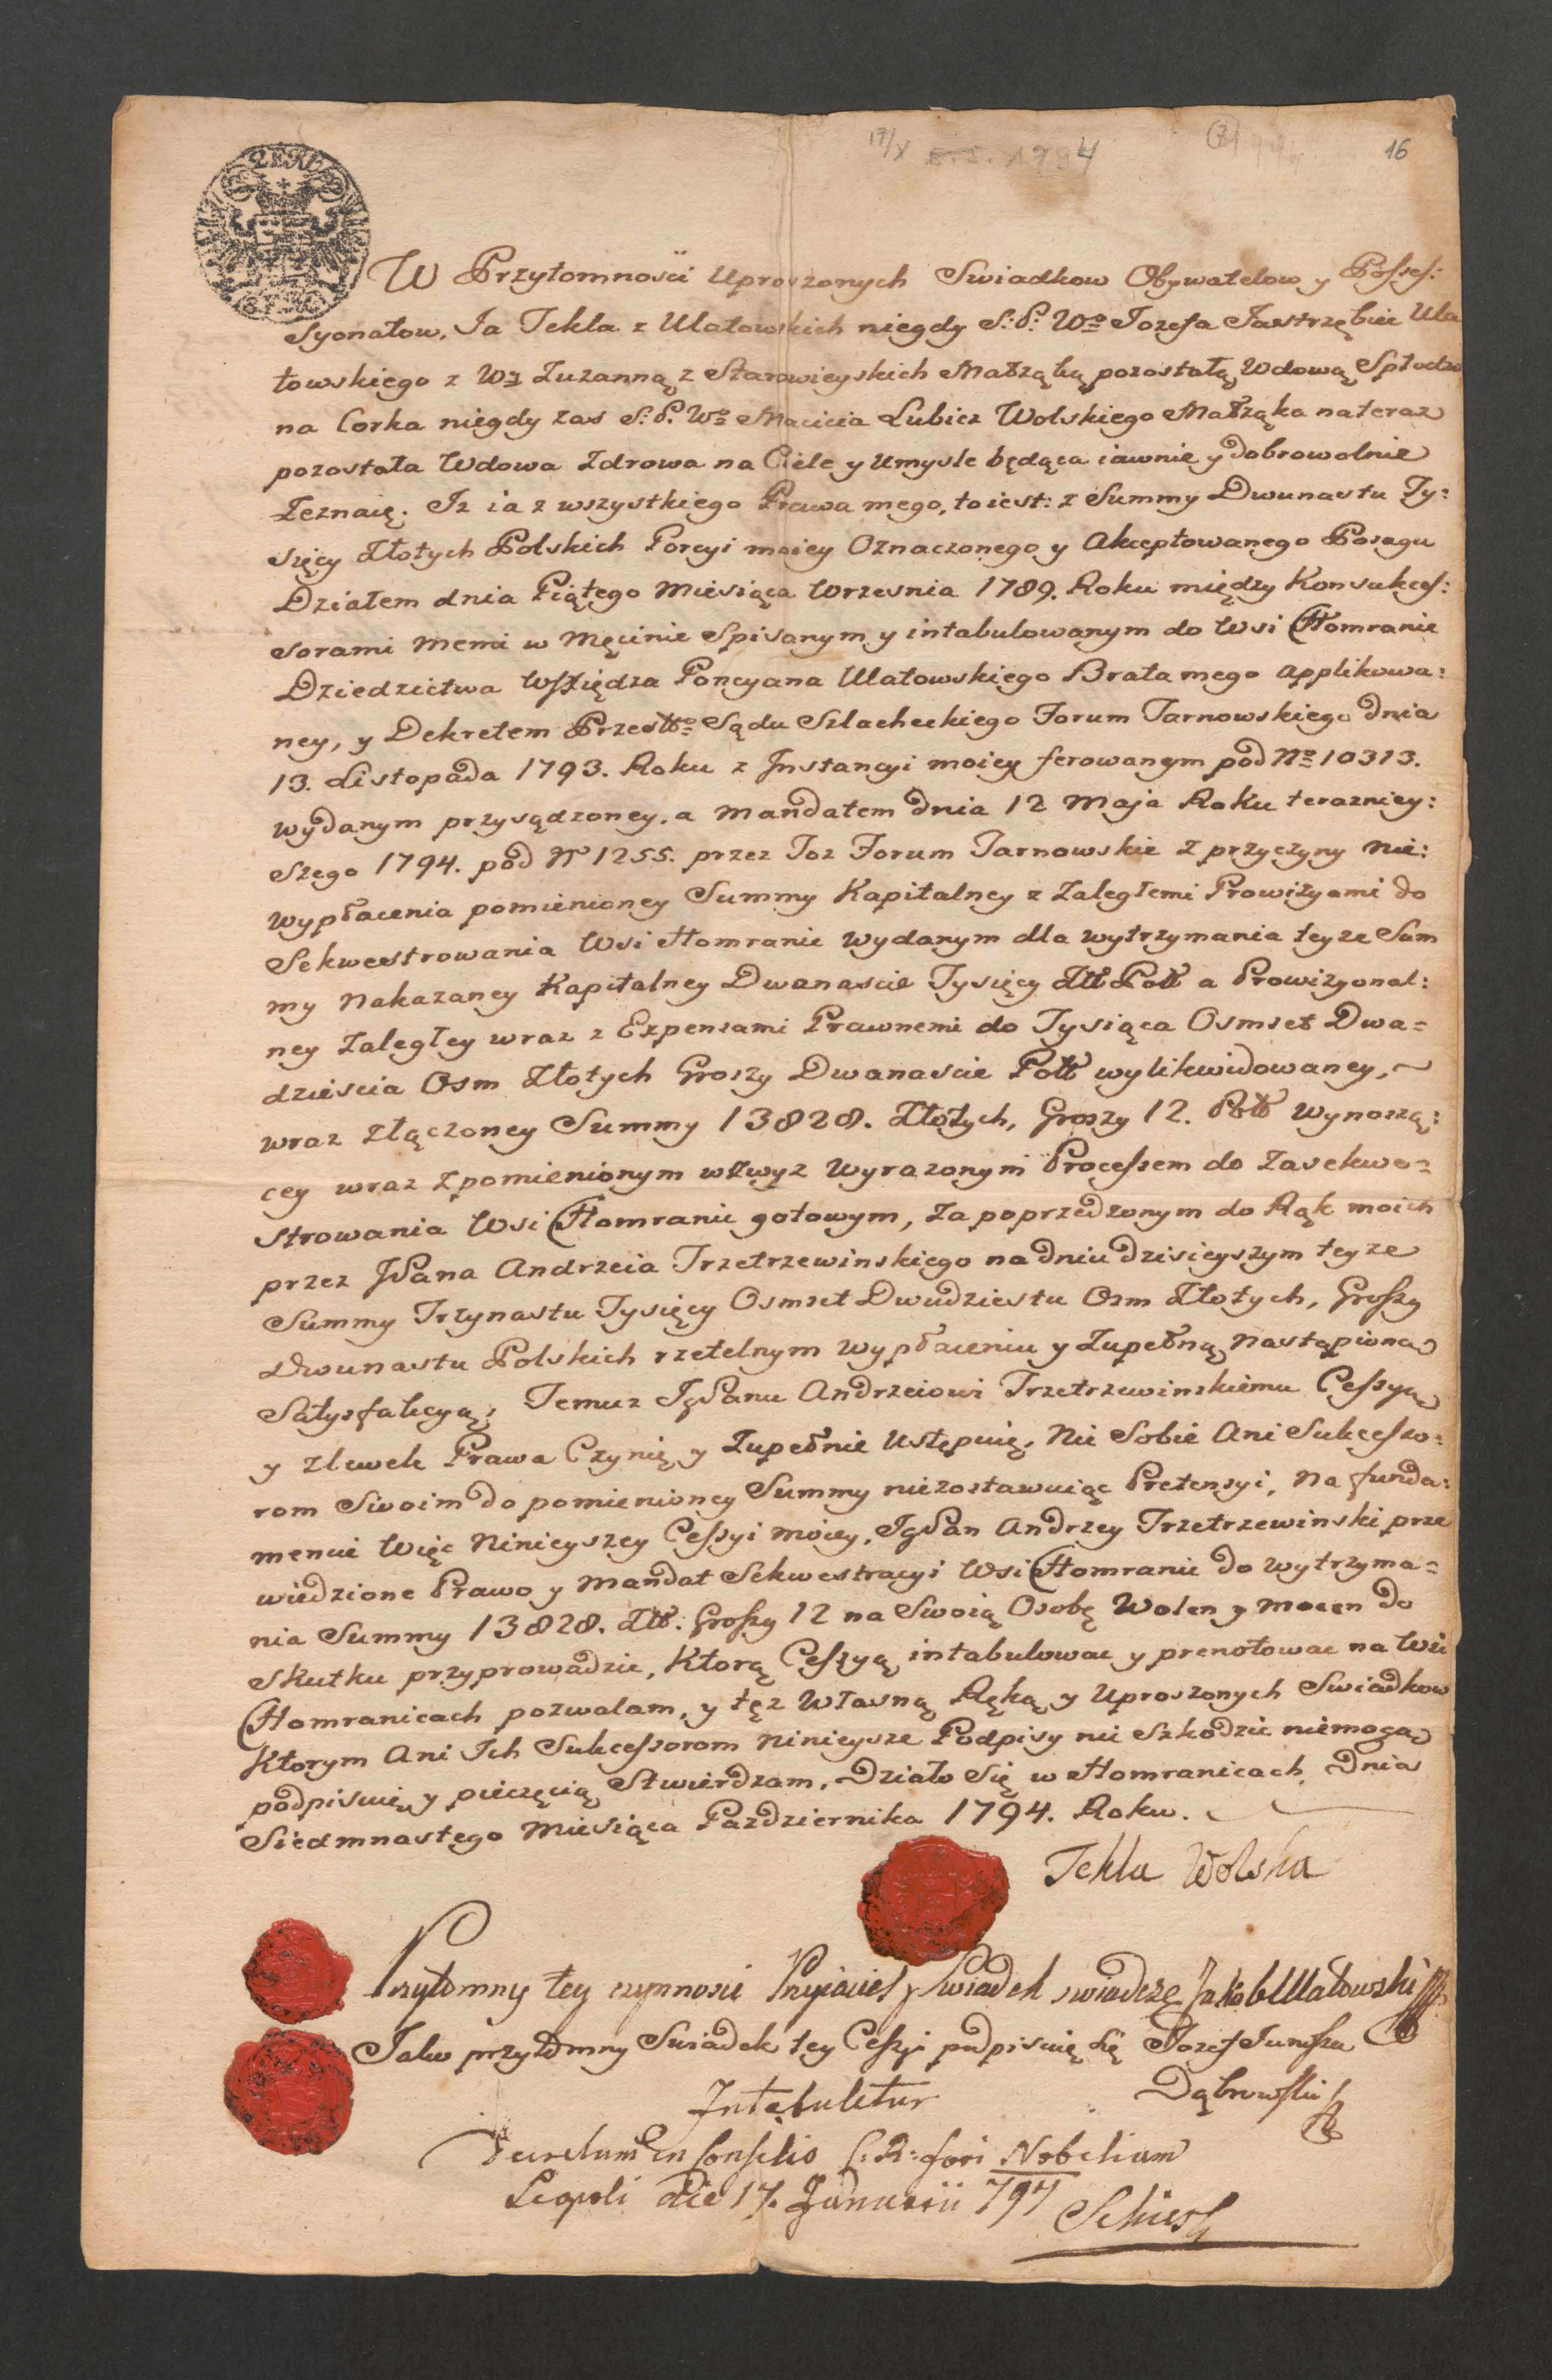 17/X 1794
16
W Przytomnosći Uproszonych Swiadkow Obywatelow y Posses:
syonatow, Ja Tekla z Ulatowskich niegdy S: P: Wo Jozefa Jastrzębiec Ula
towskiego z Wą Zuzanną z Starowieyskich Małząką pozostałą Wdową Spłodzo
na Corka niegdy zas S: P. Wo Macieia Lubicz Wolskiego Małząka nateraz
pozostała Wdowa Zdrowa na Ciele y Umysle będąca iawnie y dobrowolnie
Zeznaię. Iz ia z wszystkiego Prawa mego, to iest: z Summy Dwunastu Ty:
sięcy Złotych Polskich Porcyi moiey Oznaczonego y Akceptowanego Posagu
Działem dnia Piątego Miesiąca Wrzesnia 1789. Roku między Konsukces:
sorami Memi w Męcinie Spisanym y intabulowanym do Wsi Chomranic
Dziedzictwa Poncyana Ulatowskiego Brata mego applikowa:
ney, y Dekretem Przesło Sądu Szlacheckiego Forum Tarnowskiego dnia
13. Listopada 1793. Roku z Instancyi moiey ferowanym pod No 10313.
wydanym przysądzoney, a Mandatem dnia 12 Maja Roku terazniey:
szego 1794. pod N 1255. przez Toz Forum Tarnowskie z przyczyny Nie:
wypłacenia pomienioney Summy Kapitalney z Zaległemi Prowizyami do
Sekwestrowania Wsi Homranic wydanym dla wytrzymania teyze Sum
my Nakazaney Kapitalney Dwanascie Tysięcy Złł Poll a Prowizyonal:
ney Zaległey wraz z Expensami Prawnemi do Tysiąca Osmset Dwa=
dziescia Osm Złotych Groszy Dwanascie Poll wylikwidowaney,
wraz złączoney Summy 13828. Złotych, Groszy 12. Poll wynoszą:
cey wraz z pomienionym wzwyz wyrazonym Processem do Zasekwe=
strowania Wsi Chomranic gotowym, Za poprzedzonym do Rąk moich
przez JPana Andrzeia Trzetrzewinskiego na dniu dzisieyszym teyze
Summy Trzynastu Tysięcy Osmset Dwudziestu Osm Złotych, Groszy
Dwunastu Polskich rzetelnym wypłaceniu y Zupełną Nastąpioną
Satysfakcyą, Temuz JgPanu Andrzeiowi Trzetrzewinskiemu Cessyą
y zlewek Prawa Czynię y Zupełnie Ustępuię, Nie Sobie Ani Sukcesso=
rom Swoim do pomienioney Summy niezostawuiąc Pretensyi, Na funda:
mencie Więc Ninieyszey Cessyi moiey, JgPan Andrzey Trzetrzewinski prze
wiedzione Prawo y Mandat Sekwestracyi Wsi Chomranic do wytrzyma=
nia Summy 13828. Złł. Groszy 12 na Swoią Osobę Wolen y mocen do
Skutku przyprowadzic, Ktorą Cessyą intabulowac y prenotowac na Wsi
Chomranicach pozwalam, y tęz Własną Ręką y Uproszonych Swiadkow
Ktorym Ani Ich Sukcessorom Ninieysze Podpisy nic Szkodzic niemogą
podpisuię y pieczęcią Stwierdzam. Działo Się w Homranicach Dnia
Siedmnastego Miesiąca Pazdziernika 1794. Roku.
Tekla Wolska
Przytomny tey czynnosci Przyiaciel y Swiadek swiadczę Jakób Ulatowski
Jako przytomny Swiadek tey Cessyi podpisuię się Jozef Junosza
Dąbrowski
Intabuletur
Decretum in Consilio C: R: fori Nobilium
Leopoli die 17. Januarii 797